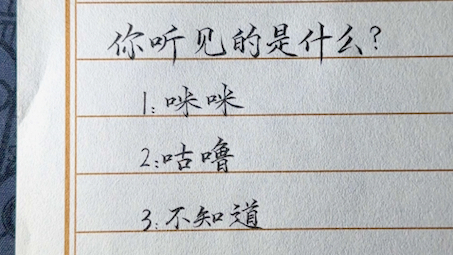 你听见的是什么?
1:咪咪
2:咕噜
3:不知道